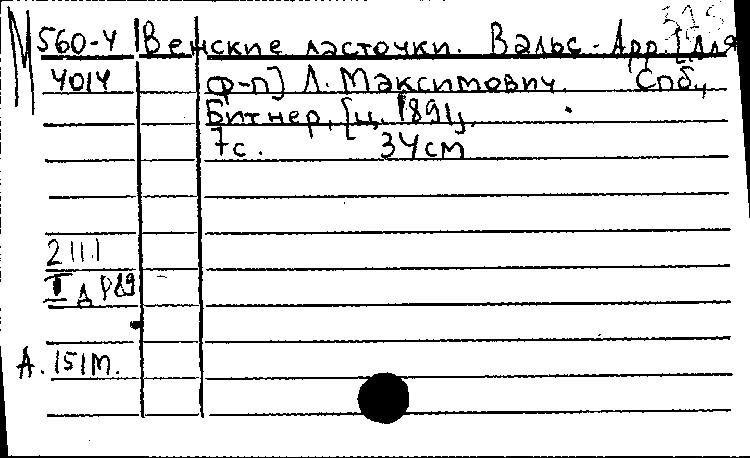 М 560-4 Венские ласточки. Вальс. Арр. [для
4014 ф-п] Л. Максимович. Спб.,
Битнер, [ц. 1891].
7с. 34см
2 111.1
А. 151м.